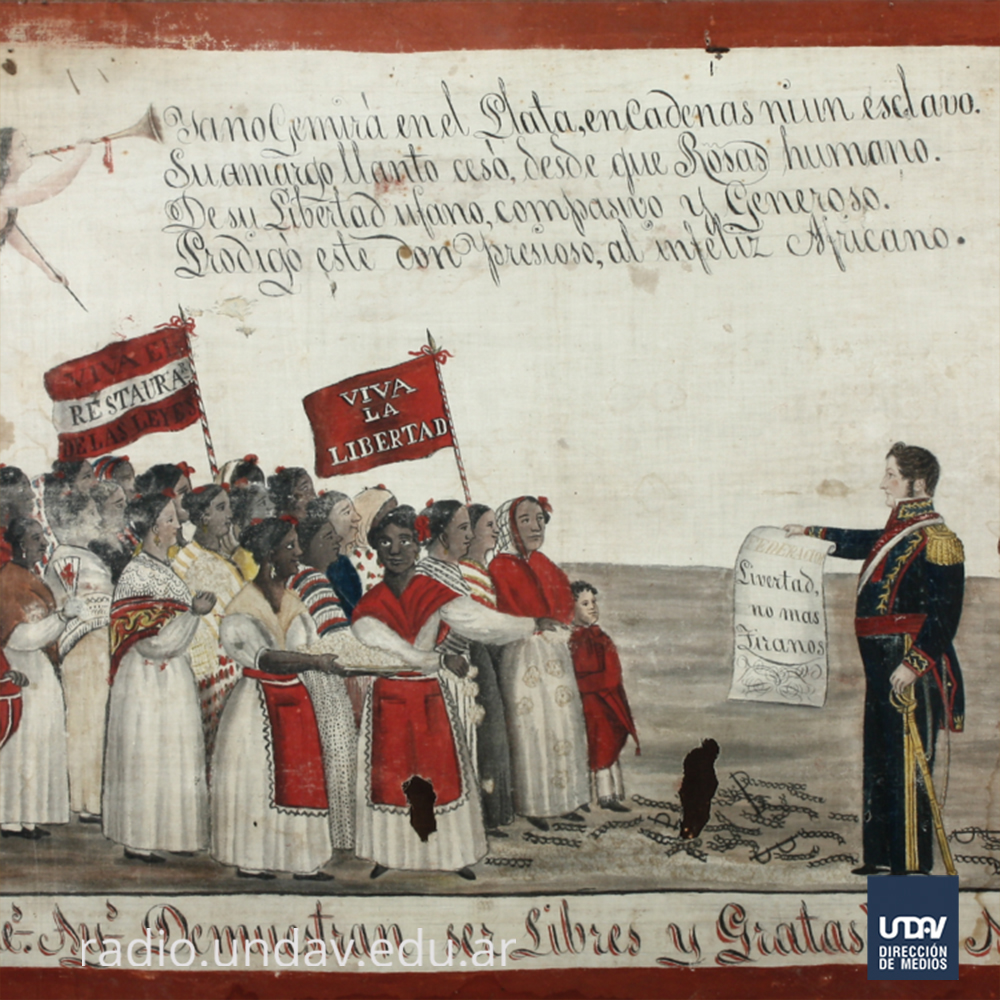 Ya no Gemirá en el Plata, en Cadenas ni un esclavo.
Su amargo llanto cesó, desde que Rosas humano.
De su Libertad ufano, compasivo y Generoso.
Prodigó este don Presioso, al infeliz Africano.
VIVA EL
RESTAURAR
DE LAS LEYES
VIVA
LA
LIBERTAD
FEDERACION
Livertad,
no mas
Tiranos
Demuestran ser Libres y Gratas
radio.undav.edu.ar
UNDAV
DIRECCIÓN
DE MEDIOS